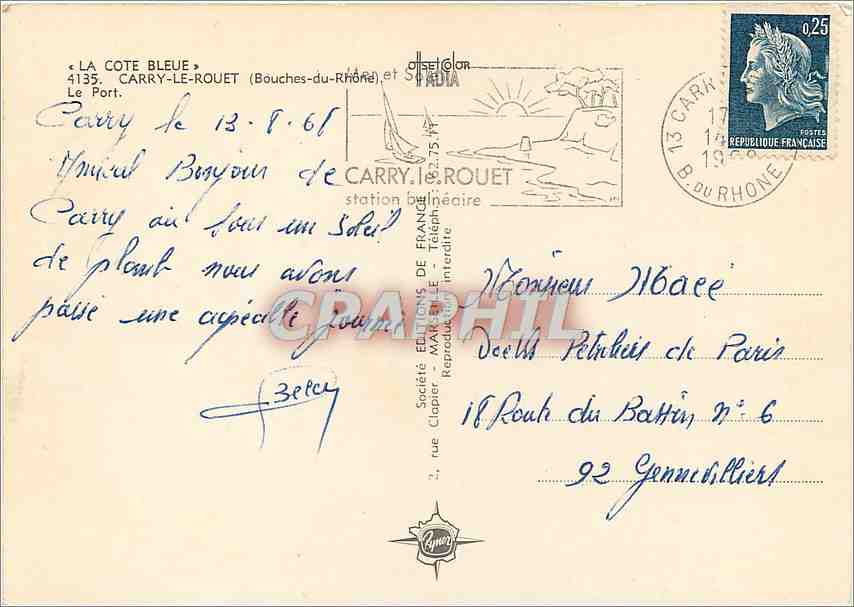 « LA COTE BLEUE »
4135. CARRY-LE-ROUET (Bouches-du-Rhône)
Le Port.
OFFSET COLOR
IADIA
Mer et Soleil
CARRY.le.ROUET
station balnéaire
13 CARRY
17
14
19
B. DU RHONE
0,25
POSTES
REPUBLIQUE FRANÇAISE
Carry le 13.8.68
Amical Bonjour de
Carry où sous un soleil
de plomb nous avons
passé une agréable journée
Société EDITIONS DE FRANCE
2, rue Clapier - MARSEILLE - Téléph. 62.75.11
Reproduction interdite
CPAPHIL
Monsieur Macé
Docks Pétroliers de Paris
18 Route du Bassin n° 6
92 Gennevilliers
Rymer